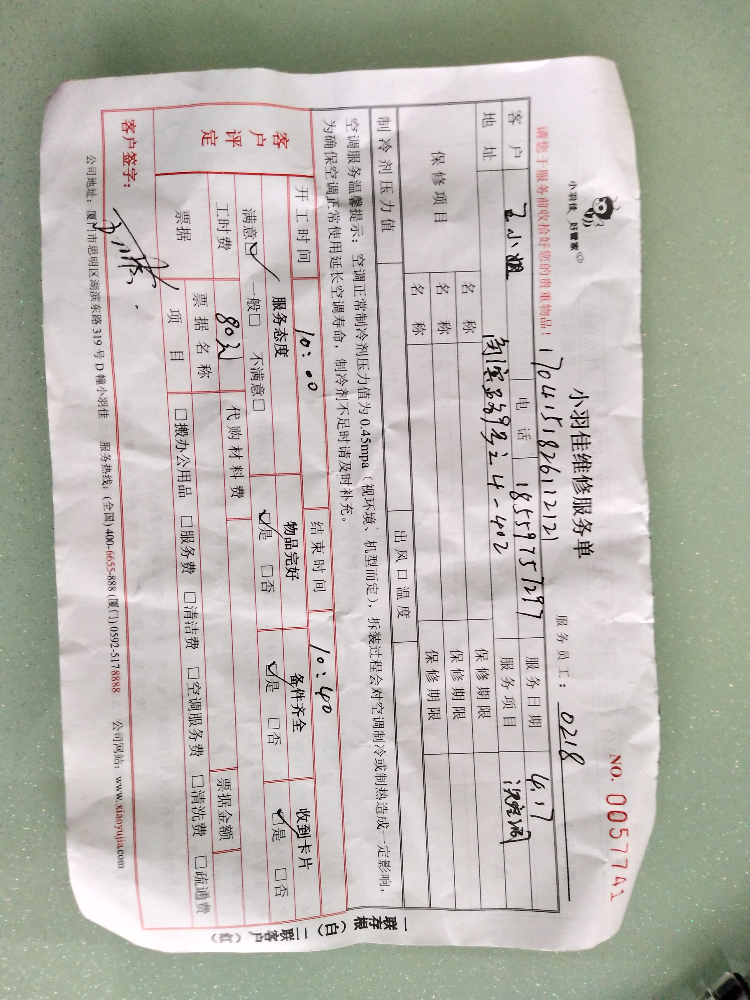 小羽佳 好管家
小羽佳维修服务单
NO. 0057741
请您于服务前收拾好您的贵重物品！
1704151826112121
服务员工： 0218
客户 王小姐 电话 18559757297 服务日期 4.17
地址 9号之4-402 服务项目 洗空调
保修项目 名称 保修期限
名称 保修期限
名称 保修期限
制冷剂压力值 出风口温度
空调服务温馨提示：空调正常制冷剂压力值为 0.45mpa（视环境、机型而定），拆装过程会对空调制冷或制热造成一定影响，
为确保空调正常使用延长空调寿命，制冷剂不足时请及时补充。
开工时间 10:00 结束时间 10:40
客户评定 服务态度 物品完好 备件齐全 收到卡片
满意☑ 一般□ 不满意□ ☑是 □否 ☑是 □否 ☑是 □否
工时费 80元 代购材料费
票据 票据名称 票据金额
项目 □搬办公用品 □服务费 □清洁费 □空调服务费 □清洗费 □疏通费
客户签字：
公司地址：厦门市思明区湖滨东路 319 号 D 幢小羽佳 服务热线：(全国) 400-6655-888 (厦门) 0592-5178888 公司网站：www.xiaoyujia.com
一联存根（白）二联客户（红）